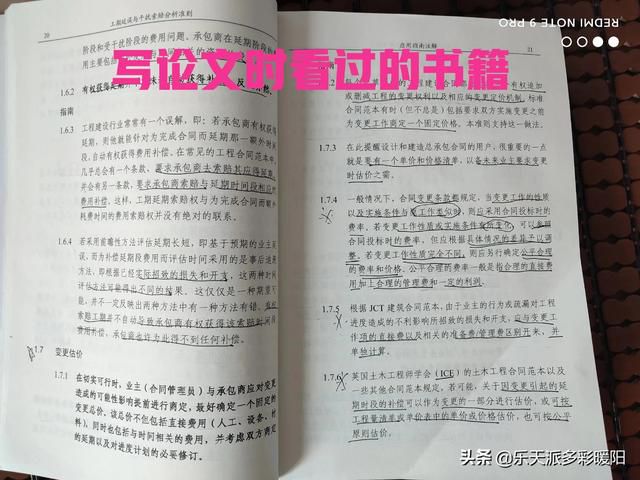 20
工期延误与干扰索赔分析准则
阶段和受干扰阶段的费用问题。承包商在延期阶段的费
用主要包括
写论文时看过的书籍
1.6.2
指南
1.6.3 工程建设行业常常有一个误解，即：若承包商有权获得
延期，则他就能针对为完成合同而延期那一额外时间
段，自动有权获得费用补偿。在常见的工程合同范本中，
几乎总有一个条款，要求承包商去索赔其应得延期，
并会有另一条款，要求承包商索赔与延期时间段相应的
费用补偿。这样，工期延期索赔权与为完成合同而额外
耗费时间的费用索赔权并没有绝对的联系。
1.6.4 若采用前瞻性方法评估延期长短，即基于预期的业主延
误，而为补偿延期段费用而评估时间采用的是事后追溯
方法，即根据已经实际招致的损失和开支，这两种时间
评估方法可能得出不同的结果。这仅仅是一种期望
能，并不一定反映出两种方法中有一种方法有错。有权
索赔工期并不自动导致承包商有权获得该索赔时间段
费用补偿，承包商也许为此得不到任何补偿。
1.7 变更估价
1.7.1 在切实可行时，业主（合同管理员）与承包商应对变更
造成的可能性影响提前进行商定，最好确定一个固定的
变更总价。该总价不但包括直接费用（人工、设备、材
料），同时也包括与时间相关的费用，并考虑双方商定
的延期以及对进度计划的必要修订。
应用指南注解
21
有权追加
或删减工程的变更权利以及相应的变更定价机制，标准
合同范本有时（但不总是）包括要求双方实施变更之前
为变更工作商定一个固定价格。本准则支持这一做法。
1.7.3 在此提醒设计和建造总承包合同的用户，很重要的一点
就是要有一个单价和价格清单，以备未来业主要求变更
时估价之需。
1.7.4 一般情况下，合同变更条款都规定，当变更工作的性质
以及实施条件与原工作类似时，则应采用合同投标时的
费率。若变更工作性质或实施条件有所变化，可以参照
合同投标时的费率，但应根据具体情况的差异予以调
整。若变更工作性质完全不同，则应另行确定公平合理
的费率和价格。公平合理的费率一般是指合理的直接费
用加上合理的管理费和一定的利润。
1.7.5 根据 JCT 建筑合同范本，由于业主的行为或疏漏对工程
进度造成的不利影响所招致的损失和开支，应与变更工
作项的直接费以及相关的准备费/管理费区别开来，并
单独计算。
1.7.6 英国土木工程师学会（ICE）的土木工程合同范本以及
一些其他合同范本规定，若可能，关于因变更引起的延
期时段的补偿可以作为变更的一部分进行估价，或可按
工程量清单或单价表中的单价或价格估价，也可按公平
原则估价。
REDMI NOTE 9 PRO
头条 @乐天派多彩暖阳